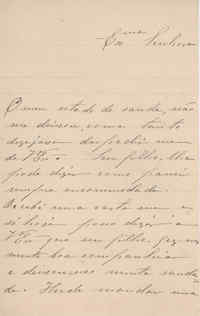 Exma Senhora
O meu estado de saude, não
me deixou, como tanto
desejava despedir me
de V. Exa. Seu filho lhe
pode dizer como passei
sempre encommodada.
Recebi uma carta sua e
só hoje posso dizer a
V. Exa que seu filho fez me
muita boa companhia
e deixou-nos muita sauda
de. Hade mandar uma